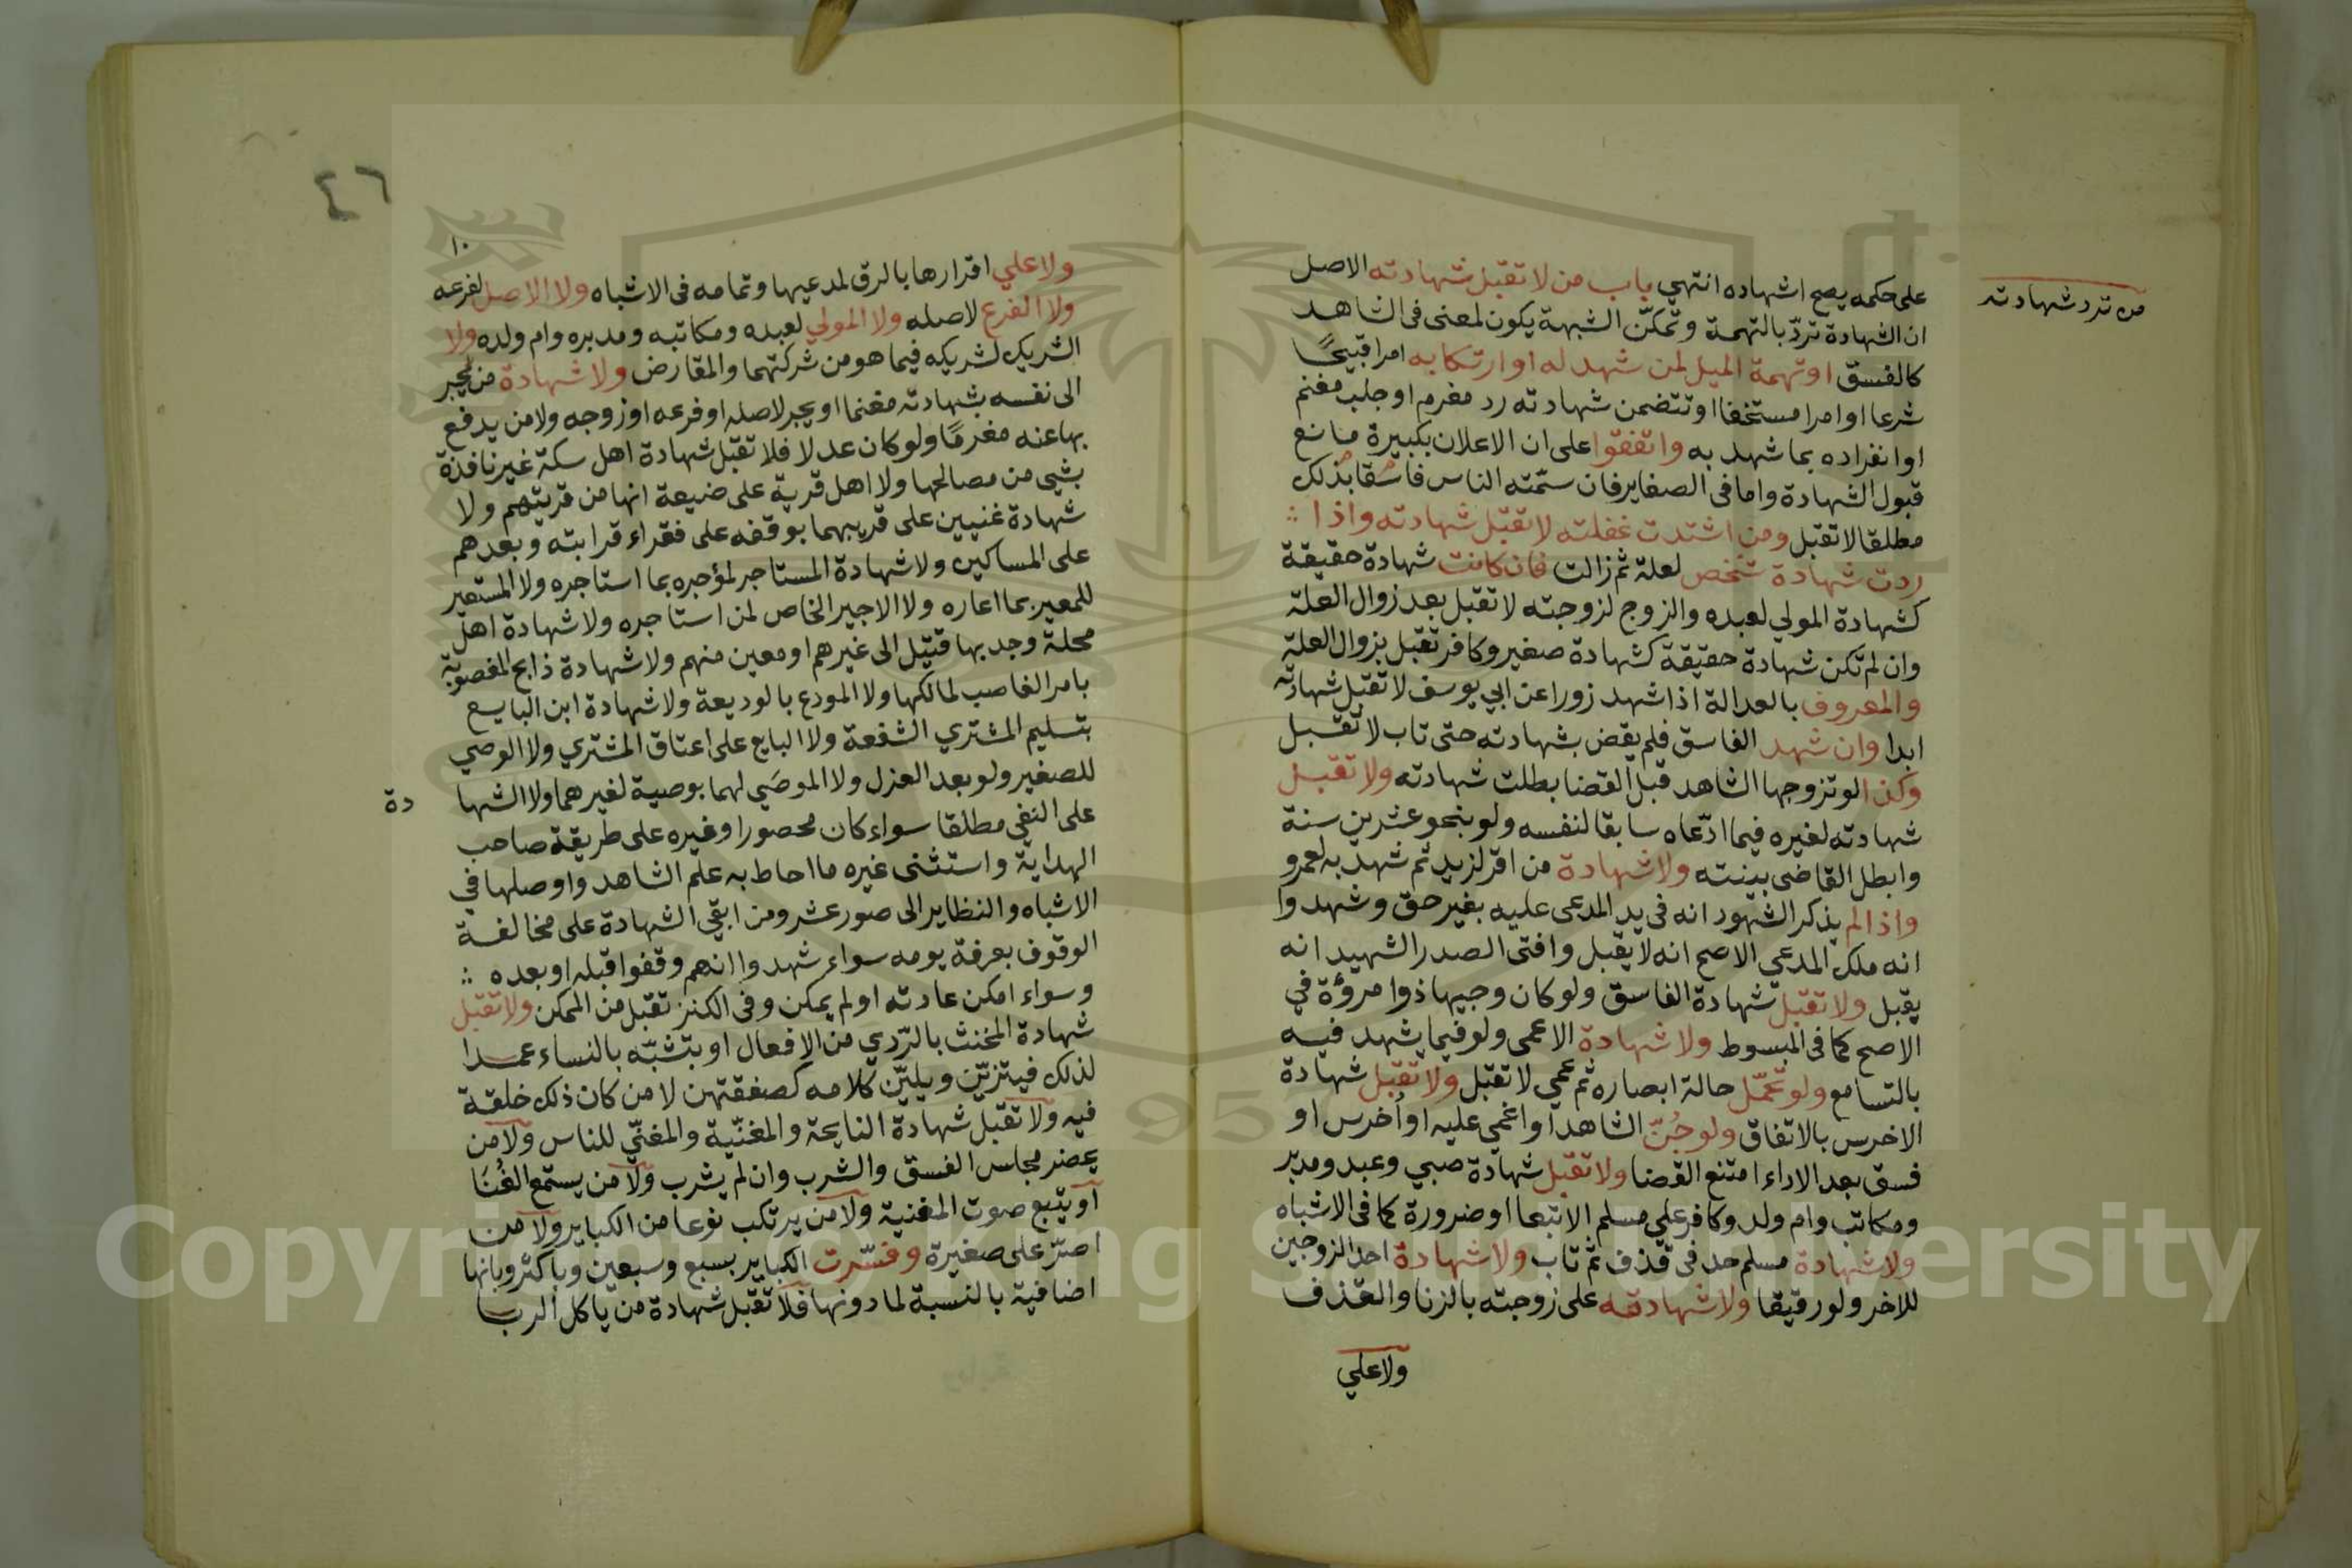 من ترد شهادته
على حكمه يصح اشهاده انتهي باب من لا تقبل شهادته الاصل
ان الشهادة تردّ بالتهمة وتمكّن الشبهة يكون لمعنى فى الشاهد
كالفسق او تهمة الميل لمن شهد له او ارتكابه امرا قبيحًا
شرعا او امرا مستخفا او تتضمن شهادته رد مغرم او جلب مغنم
او انفراده بما شهد به واتفقوا على ان الاعلان بكبيرة مانع
قبول الشهادة واما فى الصغاير فان سمّته الناس فاسقا بذلك
مطلقا لا تقبل ومن اشتدت غفلته لا تقبل شهادته واذا
ردت شهادة شخص لعلة ثم زالت فان كانت شهادة حقيقة
كشهادة المولي لعبده والزوج لزوجته لا تقبل بعد زوال العلة
وان لم تكن شهادة حقيقة كشهادة صغير وكافر تقبل بزوال العلة
والمعروف بالعدالة اذا شهد زورا عن ابي يوسف لا تقبل شهادته
ابدا وان شهد الفاسق فلم يقض بشهادته حتى تاب لا تقبل
وكذا لو تزوجها الشاهد قبل القضا بطلت شهادته ولا تقبل
شهادته لغيره فيما ادّعاه سابقا لنفسه ولو بنحو عشرين سنة
وابطل القاضى بينته ولا شهادة من اقر لزيد ثم شهد به لعمرو
واذا لم يذكر الشهود انه فى يد المدعى عليه بغير حق وشهدوا
انه ملك المدعي الاصح انه لا يقبل وافتى الصدر الشهيد انه
يقبل ولا تقبل شهادة الفاسق ولو كان وجيها ذوا مروؤة في
الاصح كما فى المبسوط ولا شهادة الاعمى ولو فيما يشهد فيه
بالتسامع ولو تحمّل حالة ابصاره ثم عمي لا تقبل ولا تقبل شهادة
الاخرس بالاتفاق ولو جُنّ الشاهد او اغمي عليه او اُخرس او
فسق بعد الاداء امتنع القضا ولا تقبل شهادة صبي وعبد ومدبر
ومكاتب وام ولد وكافر علي مسلم الا تبعا او ضرورة كما فى الاشباه
ولا شهادة مسلم حد فى قذف ثم تاب ولا شهادة احد الزوجين
للاخر ولو رقيقا ولا شهادته على زوجته بالزنا والقذف
ولا علي
٤٦
١٠
ولا علي اقرارها بالرق لمدعيها وتمامه فى الاشباه ولا الاصل لفرعه
ولا الفرع لاصله ولا المولي لعبده ومكاتبه ومدبره وام ولده ولا
الشريك لشريكه فيما هو من شركتهما والمقارض ولا شهادة من يجبر
الى نفسه بشهادته مغنما او يجبر لاصله او فرعه او زوجه ولا من يدفع
بها عنه مغرمًا ولو كان عدلا فلا تقبل شهادة اهل سكة غير نافذة
بشيي من مصالحها ولا اهل قرية على ضيعة انها من قريتهم ولا
شهادة غنيين على قريبهما بوقفه على فقراء قرابته وبعدهم
على المساكين ولا شهادة المستاجر لمؤجره بما استاجره ولا المستعير
للمعير بما اعاره ولا الاجير الخاص لمن استاجره ولا شهادة اهل
محلة وجد بها قتيل الى غيرهم او معين منهم ولا شهادة ذابح المغصوبة
بامر الغاصب لمالكها ولا المودع بالوديعة ولا شهادة ابن البايع
بتسليم المشتري الشفعة ولا البايع على اعتاق المشتري ولا الوصي
للصغير ولو بعد العزل ولا الموصَي لهما بوصية لغيرهما ولا الشها دة
على النفي مطلقا سواء كان محصورا وغيره على طريقة صاحب
الهداية واستثنى غيره ما احاط به علم الشاهد واوصلها في
الاشباه والنظاير الى صور عشر ومن ابقي الشهادة على مخالفة
الوقوف بعرفة يومه سواء شهدوا انهم وقفوا قبله او بعده
وسواء امكن عادته او لم يمكن وفى الكنز تقبل من الممكن ولا تقبل
شهادة المخنث بالرّدي من الافعال او بتشبّه بالنساء عمدا
لذلك فيتزيّن ويليّن كلامه كصفقتهن لا من كان ذلك خلقة
فيه ولا تقبل شهادة النايحة والمغنّية والمغنّي للناس ولا من
يحضر مجاس الفسق والشرب وان لم يشرب ولا من يستمع الغُنَا
او يتبع صوت المغنية ولا من يرتكب نوعا من الكباير ولا من
اصرّ على صغيرة وفسّرت الكباير بسبع وسبعين وباكثر وبانها
اضافية بالنسبة لما دونها فلا تقبل شهادة من ياكل الربا
Copyright © King Saud University
1957